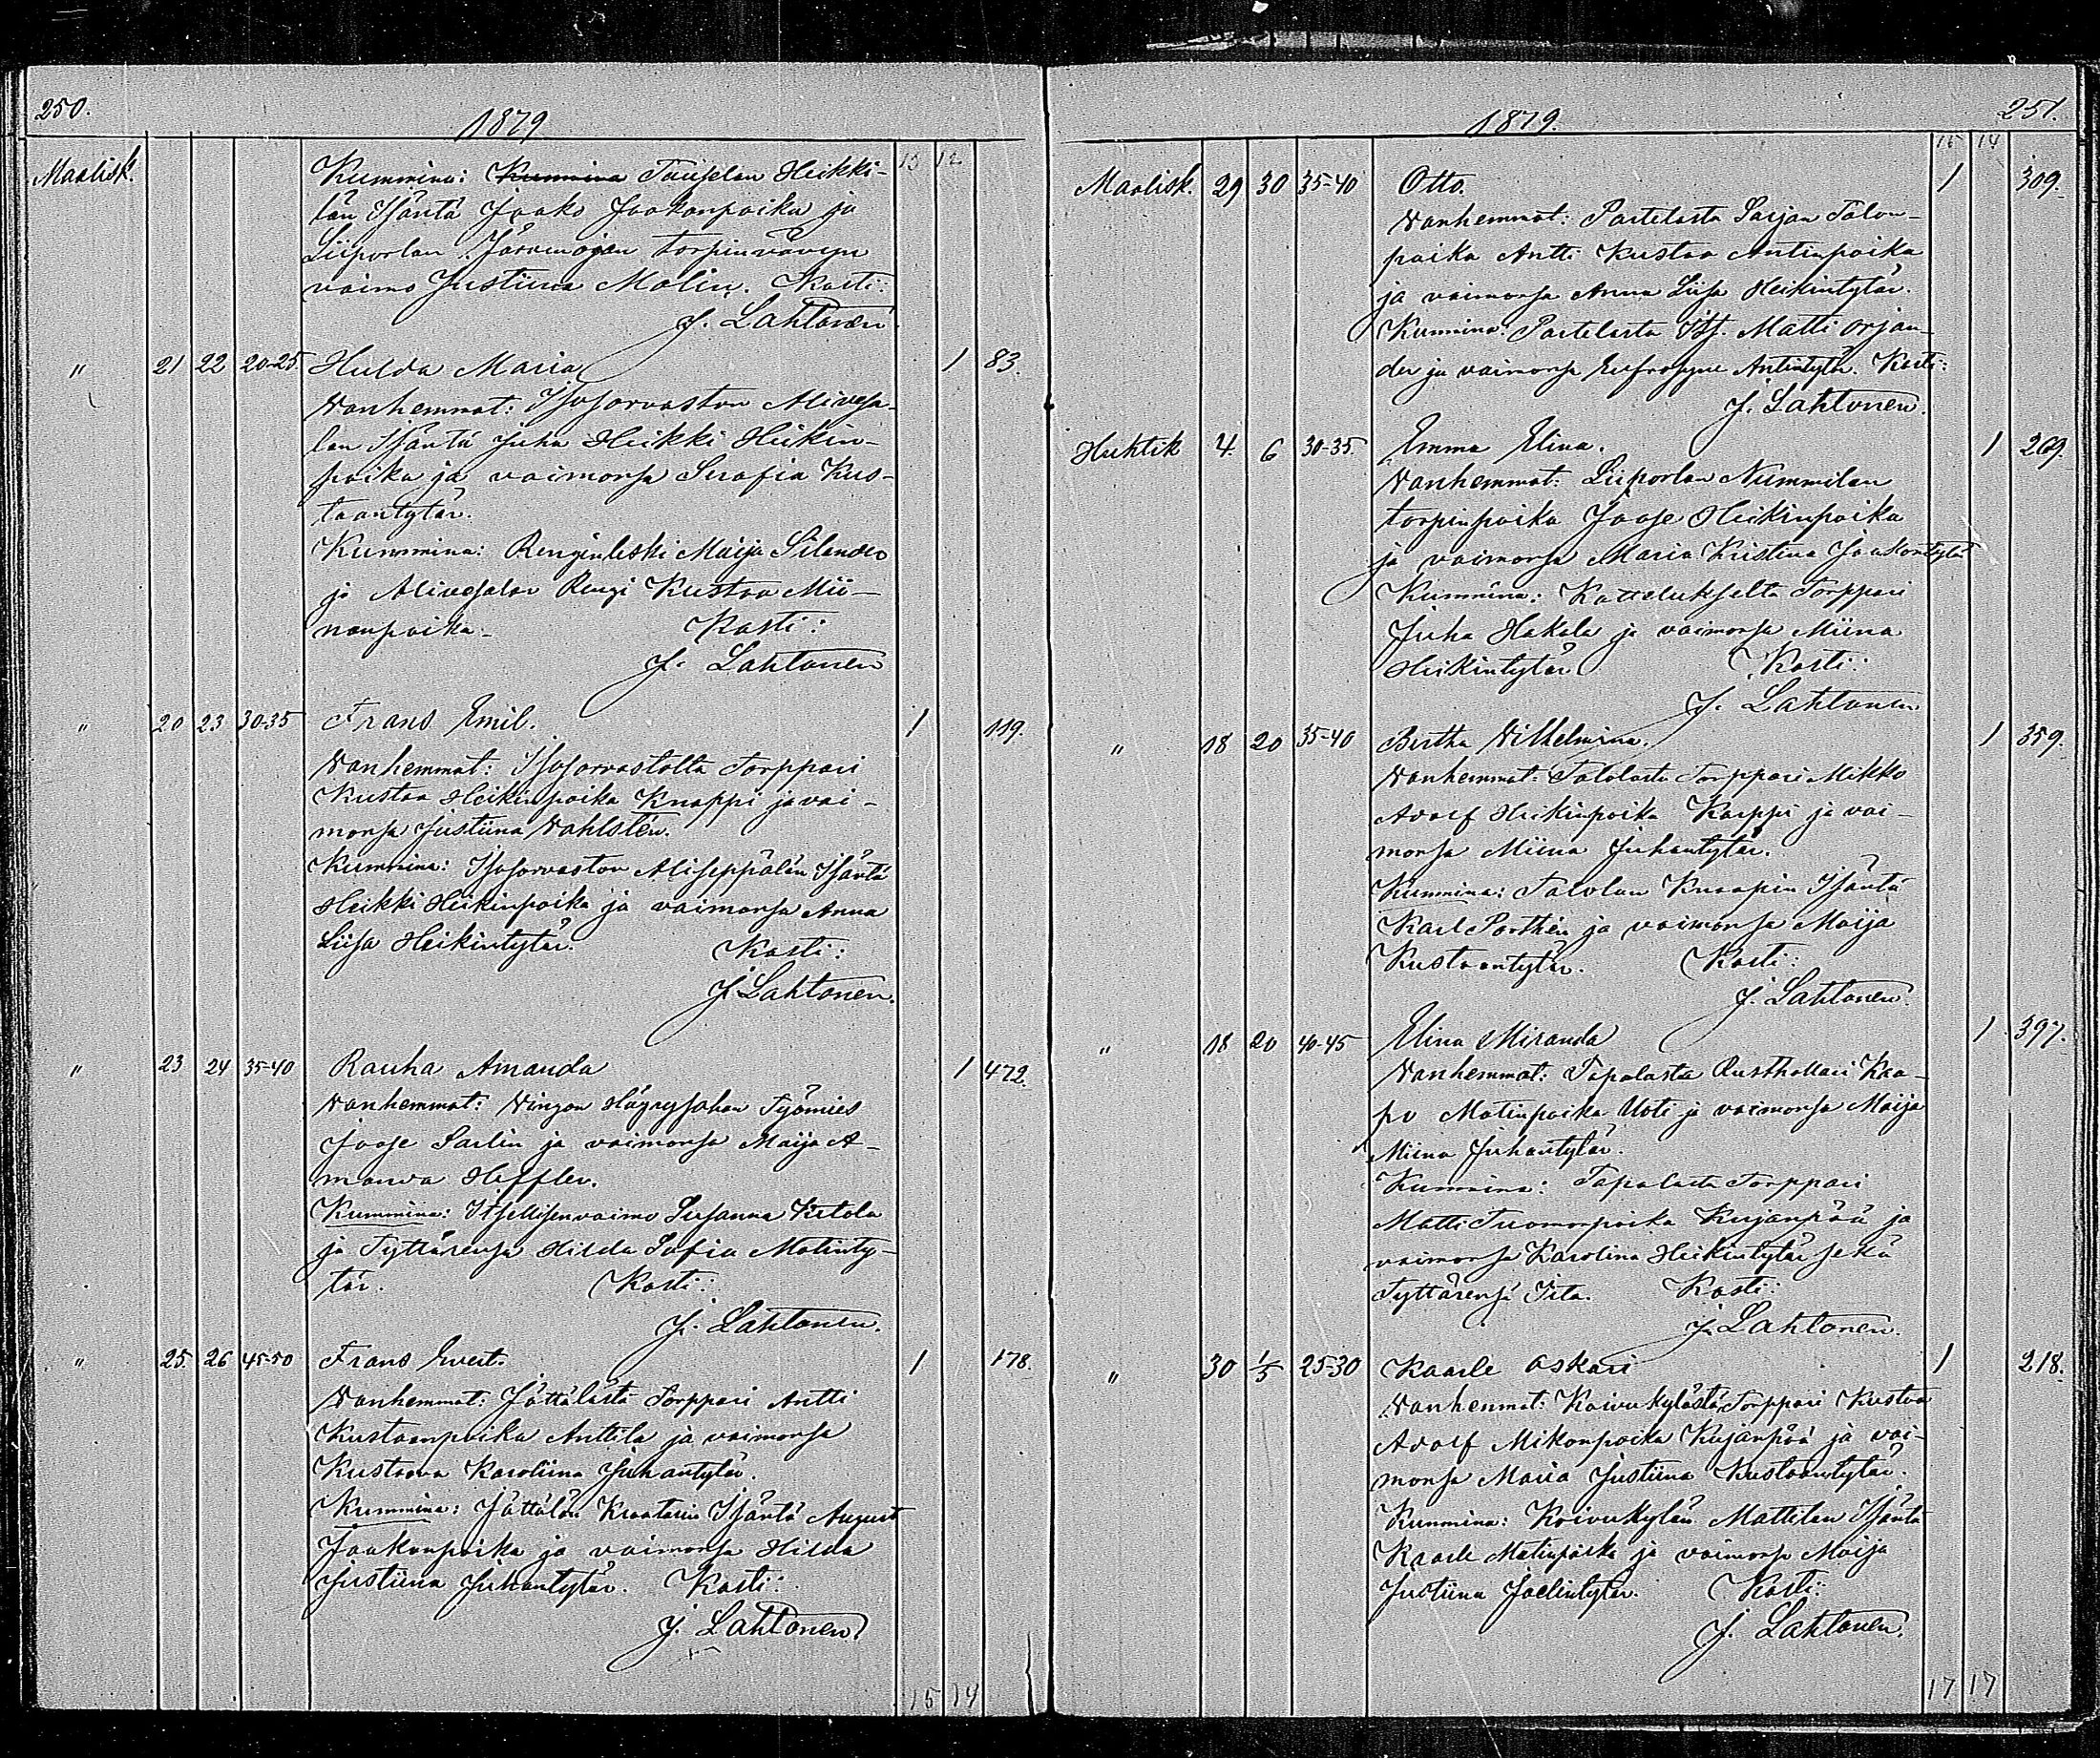 250.
1879
13 12
Maalisk. Kummina: Kummina Taipelen Heikki-
län Isäntä Jaako Jaakonpoika ja
Liiporlan Järvenojan torpinvävyn
vaimo Justiina Malin. Kasti:
J. Lahtonen
" 21 22 20-25. Hulda Maria 1 83.
Vanhemmat: Isosorvaston Alivesa-
lan Isäntä Juha Heikki Heikin-
poika ja vaimonsa Serafia Kus-
taantytär.
Kummina: Renginleski Maija Silander
ja Alivesalan Rengi Kustaa Mii-
nanpoika. Kasti:
J. Lahtonen
" 20 23 30-35 Frans Emil. 1 119.
Vanhemmat: Isosorvastolta Torppari
Kustaa Heikinpoika Knaappi ja vai-
monsa Justiina Vahlstén.
Kummina: Isosorvaston Aliseppälän Isäntä
Heikki Heikinpoika ja vaimonsa Anna
Liisa Heikintytär. Kasti:
J. Lahtonen.
" 23 24 35-40 Rauha Amanda 1 472.
Vanhemmat: Vinzon Työmies
Joose Sarlin ja vaimonsa Maija A-
manda Heffler.
Kummina: Itsellisenvaimo Susanna Ketola
ja Tyttärensä Hilda Sofia Matinty-
tär. Kasti:
J. Lahtonen.
" 25. 26 45-50 Frans Evert. 1 178.
Vanhemmat: Jättälästä Torppari Antti
Kustaanpoika Anttila ja vaimonsa
Kustaava Karoliina Juhantytär.
Kummina: Jättälän Kraatarin Isäntä August
Jaakonpoika ja vaimonsa Hilda
Justiina Juhantytär. Kasti:
J. Lahtonen
15 14
251.
1879.
15 14
Maalisk. 29 30 35-40 Otto. 1 309.
Vanhemmat: Partelasta Sarjan Talon-
poika Antti Kustaa Antinpoika
ja vaimonsa Anna Liisa Heikintytär.
Kummina: Partelasta Its. Matti Orjan-
der ja vaimonsa Eufrosyne Antintytär. Kasti:
J. Lahtonen.
Huhtik 4. 6 30-35. Emma Elina. 1 269.
Vanhemmat: Liiporlan Nummilan
torpinpoika Joose Heikinpoika
ja vaimonsa Maria Kristina Jaakontytär
Kummina: Kattelukselta Torppari
Juha Hakala ja vaimonsa Miina
Heikintytär Kasti:
J. Lahtonen
" 18 20 35-40 Bertha Vilhelmina. 1 359.
Vanhemmat: Talolasta Torppari Mikko
Adolf Heikinpoika Karppi ja vai-
monsa Miina Juhantytär.
Kummina: Talolan Knaapin Isäntä
Karl Porthén ja vaimonsa Maija
Kustaantytär. Kasti:
J. Lahtonen.
" 18 20 40-45 Elina Miranda 1 397.
Vanhemmat: Tapalasta Rusthollari Kaa-
po Matinpoika Uoti ja vaimonsa Maija
Miina Juhantytär.
Kummina: Tapalasta Torppari
Matti Tuomonpoika Kujanpää ja
vaimonsa Karolina Heikintytär sekä
Tyttärensä Iita. Kasti:
J. Lahtonen.
" 30 1/5 25-30 Kaarle Oskari 1 218.
Vanhemmat: Koivukylästä Torppari Kustaa
Adolf Mikonpoika Kujanpää ja vai-
monsa Maria Justiina Kustaantytär.
Kummina: Koivukylän Mattilan Isäntä
Kaarle Matinpoika ja vaimonsa Maija
Justiina Joelintytär. Kasti:
J. Lahtonen.
17 17